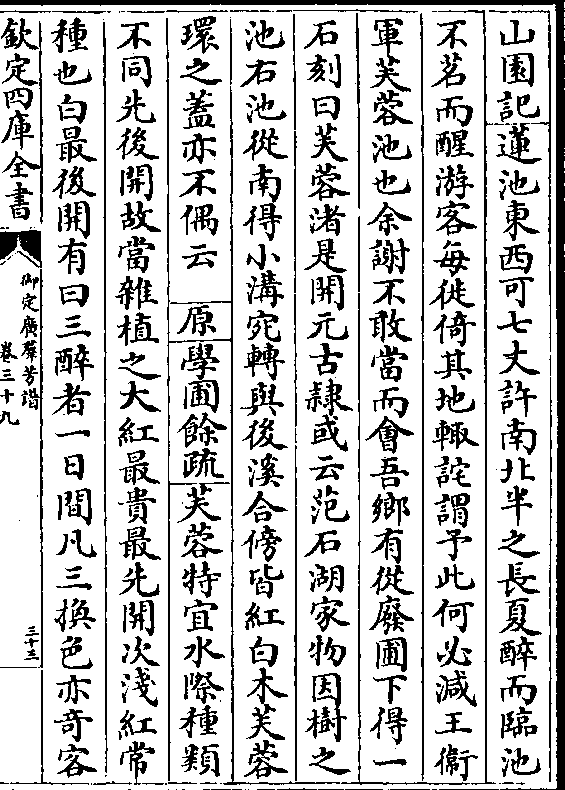 山園記蓮池東西可七丈許南北半之長夏醉而臨池
不茗而醒游客每徙倚其地輒詫謂予此何必減王衛
軍芙蓉池也余謝不敢當而會吾鄉有從廢圃下得一
石刻曰芙蓉渚是開元古隸或云范石湖家物因樹之
池右池從南得小溝宛轉與後溪合傍皆紅白木芙蓉
環之蓋亦不偶云原學圃餘疏芙蓉特宜水際種類
不同先後開故當雜植之大紅最貴最先開次淺紅常
種也白最後開有曰三醉者一日間凡三換色亦奇客
欽定四庫全書
御定廣羣芳譜
卷三十九
三十三